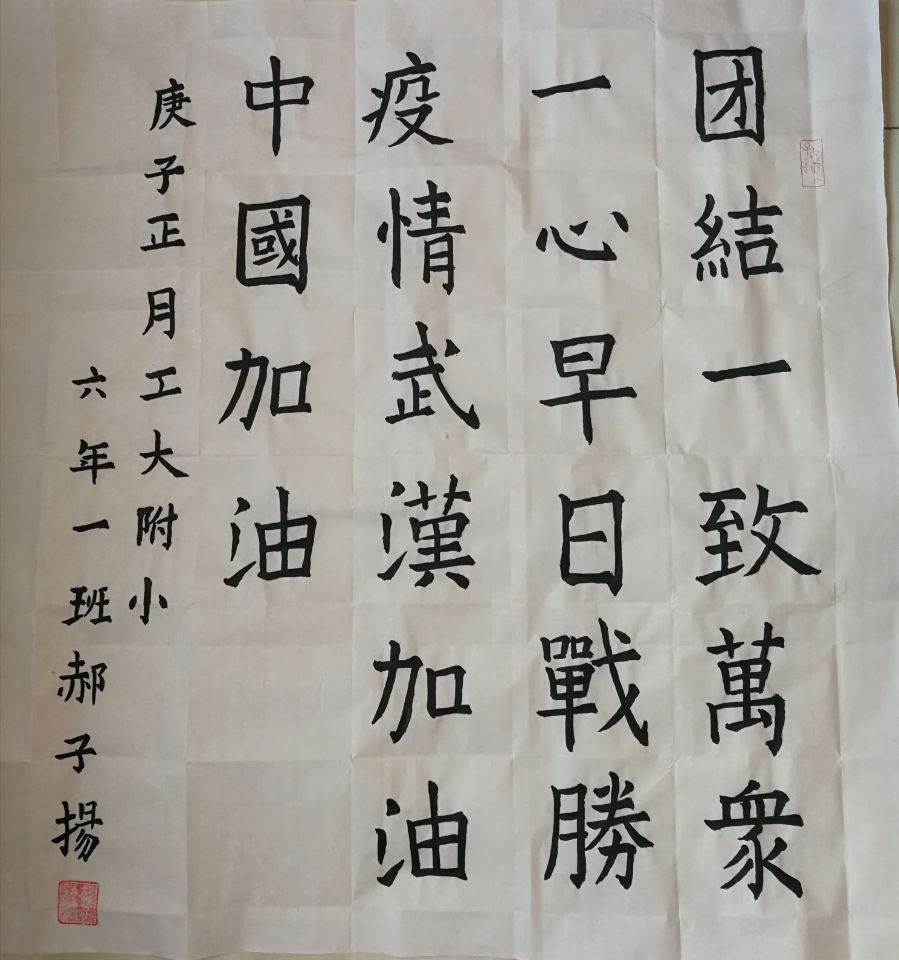 团結一致萬衆
一心早日戰勝
疫情武漢加油
中國加油
庚子正月工大附小
六年一班郝子揚